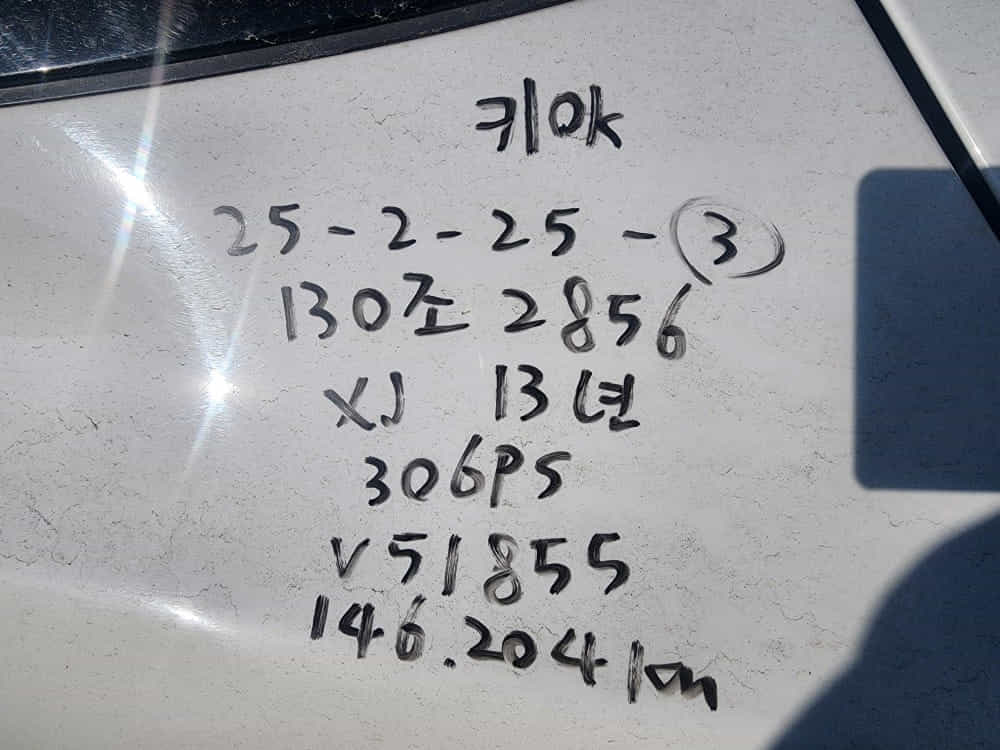 키OK
25-2-25-③
130조 2856
XJ 13년
306PS
V51855
146.204km